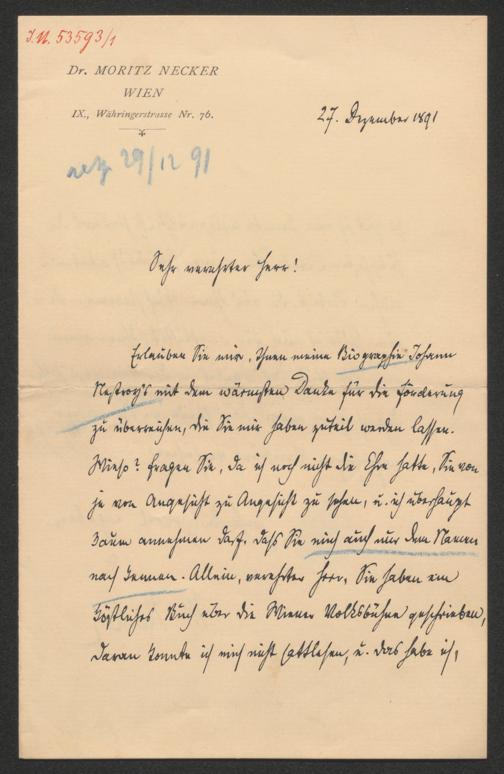 I.N. 53593/1
Dr. MORITZ NECKER
WIEN
IX., Währingerstrasse Nr. 76.
27. Dezember 1891
29/12 91
Sehr verehrter Herr!
Erlauben Sie mir, Ihnen meine Biographie Johann
Nestroy's mit dem wärmsten Danke für die Förderung
zu überreichen, die Sie mir haben zuteil werden lassen.
Wieso? fragen Sie, da ich noch nicht die Ehre hatte, Sie von
je von Angesicht zu Angesicht zu sehen, u. ich überhaupt
kaum annehmen darf, dass Sie mich auch nur dem Namen
nach kennen. Allein, verehrter Herr, Sie haben ein
köstliches Buch über die Wiener Volksbühne geschrieben,
daran konnte ich mich nicht sattlesen, u. das habe ich,